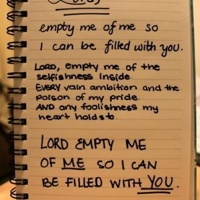 Lord,
empty me of me so
I can be filled with you.
LORD, empty me of the
selfishness inside
EVERY vain ambition and the
poison of my pride
AND any foolishness my
heart holds to.
LORD EMPTY ME
OF ME SO I CAN
BE FILLED WITH YOU.